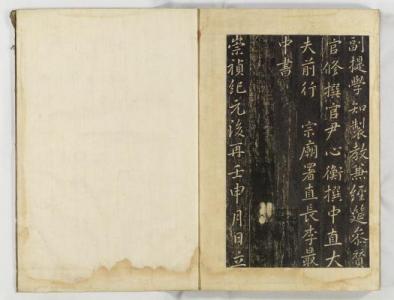 副提學知製教兼經筵叅贊
官修撰官尹心衡撰中直大
夫前行 宗廟署直長李最
中書
崇禎紀元後再壬申月日立